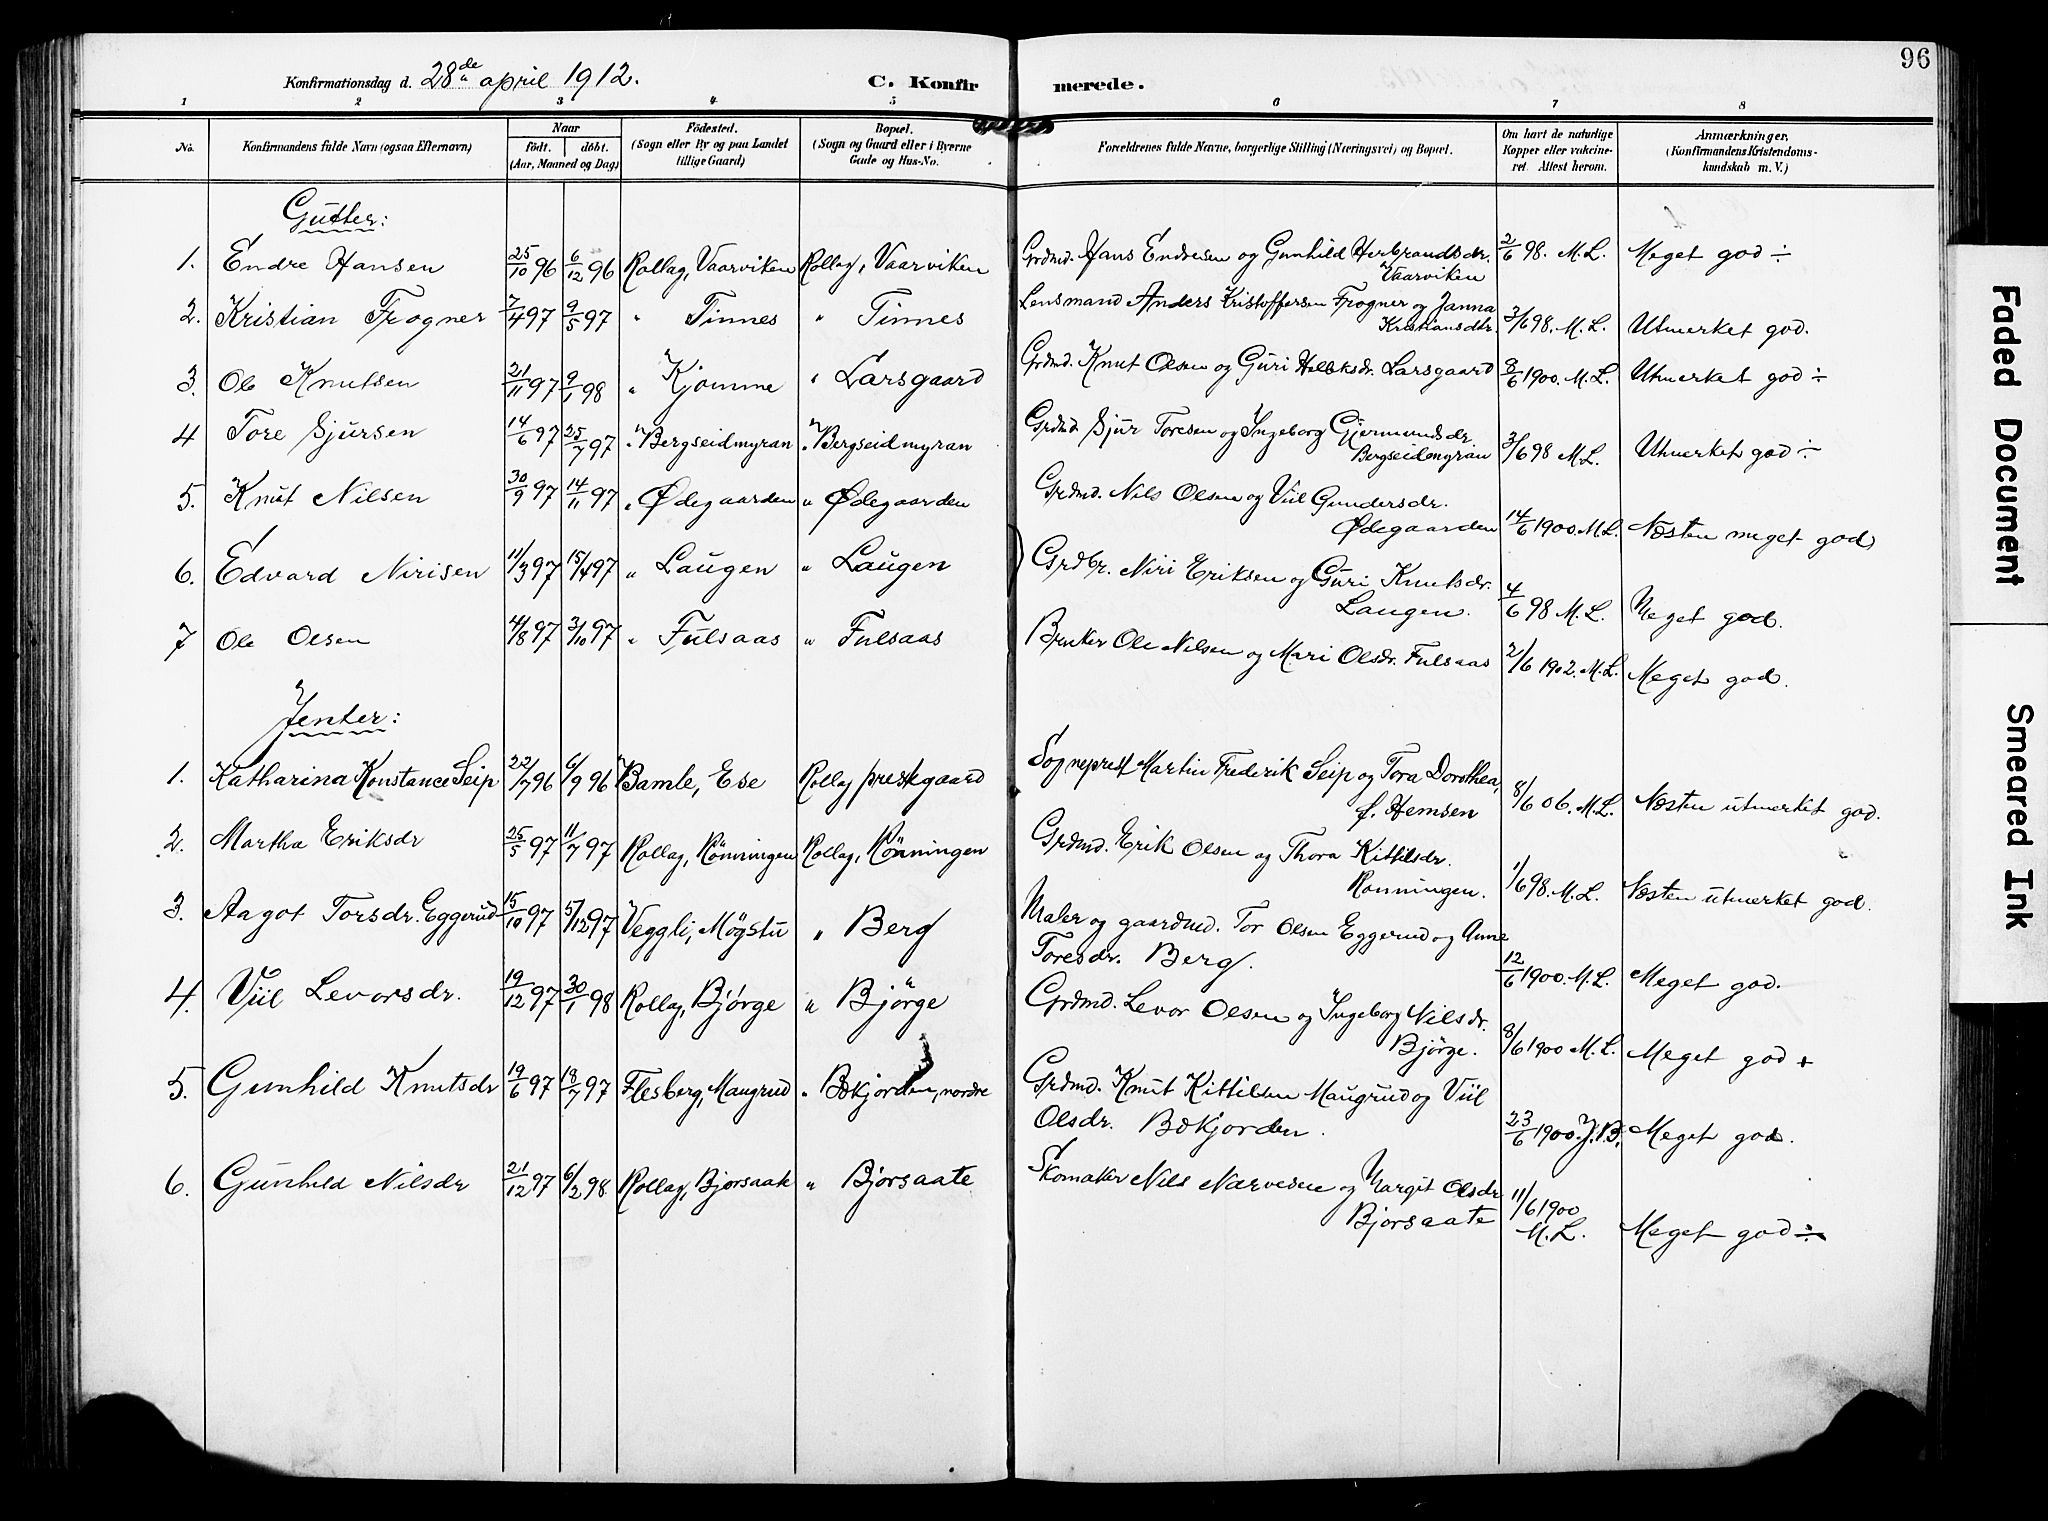 96
Konfirmationsdag d. 28de april 1912.
C. Konfirmerede.
1 2 3 4 5 6 7 8
No. Konfirmandens fulde Navn (ogsaa Efternavn) Naar födt. döbt. (Aar, Maaned og Dag) Födested. (Sogn eller By og paa Landet tillige Gaard) Bopæl. (Sogn og Gaard eller i Byerne Gade og Hus-No. Forældrenes fulde Navne, borgerlige Stilling (Næringsvei) og Bopæl. Om havt de naturlige Kopper eller vakcineret. Attest herom. Anmærkninger. (Konfirmandens Kristendomskundskab m. V.)
Gutter:
1. Endre Hansen 25/10 96 6/12 96 Rollag, Vaarviken Rollag, Vaarviken Grdmd. Hans Endresen og Gunhild Herbrandsdr. Vaarviken 2/6 98. M.L. Meget god ÷
2. Kristian Frogner 7/4 97 9/5 97 " Tinnes " Tinnes Lensmand Anders Kristoffersen Frogner og Janna Kristiansdtr. 3/6 98. M.L. Utmerket god.
3. Ole Knutsen 21/11 97 9/1 98 " Kjomme " Larsgaard Grdmd. Knut Olsen og Guri Halvksdr. Larsgaard 8/6 1900. M.L. Utmerket god ÷
4 Tore Sjursen 14/6 97 25/7 97 " Bergseidmyran " Bergseidmyran Grdmd. Sjur Toresen og Ingeborg Gjermundsdr. Bergseidmyran 3/6 98 M.L. Utmerket god ÷
5. Knut Nilsen 30/9 97 14/11 97 " Ødegaarden " Ødegaarden Grdmd. Nils Olsen og Viil Gundersdr. Ødegaarden 14/6 1900. M.L. Næsten meget god
6. Edvard Nirisen 11/3 97 15/4 97 " Laugen " Laugen Grdbr. Niri Eriksen og Guri Knutsdr. Laugen. 4/6 98 M.L. Meget god.
7 Ole Olsen 4/8 97 3/10 97 " Fulsaas " Fulsaas Bruker Ole Nilsen og Mari Olsdr. Fulsaas 2/6 1902. M.L. Meget god.
Jenter:
1. Katharina Konstance Seip 22/7 96 6/9 96 Bamle, Ese Rollag prestegaard Sogneprest Martin Frederik Seip og Tora Dorothea, f. Hemsen 8/6 06. M.L. Næsten utmerket god.
2. Martha Eriksdr 25/5 97 11/7 97 Rollag, Rönningen Rollag, Rönningen Grdmd. Erik Olsen og Thora Kittilsdr. Rönningen. 1/6 98. M.L. Næsten utmerket god.
3. Aagot Torsdr. Eggerud 15/10 97 5/12 97 Veggli, Mögstu " Berg Maler og gaardmd. Tor Olsen Eggerud og Anne Toresdr. Berg. 12/6 1900. M.L. Meget god.
4. Viil Levorsdr. 19/12 97 30/1 98 Rollag, Bjørge " Bjørge Grdmd. Levor Olsen og Ingeborg Nilsdr. Bjørge. 8/6 1900 M.L. Meget god +
5. Gunhild Knutsdr 19/6 97 18/7 97 Flesberg, Maugrud " Bækjorden, nordre Grdmd. Knut Kittilsen Maugrud og Viil Olsdr. Bækjorden. 23/6 1900. J.B. Meget god.
6. Gunhild Nilsdr 21/12 97 6/2 98 Rollag, Bjørsaate " Bjørsaate Skomaker Nils Narvesen og Margit Olsdr Bjørsaate 11/6 1900 M.L. Meget god ÷
Faded Document
Smeared Ink